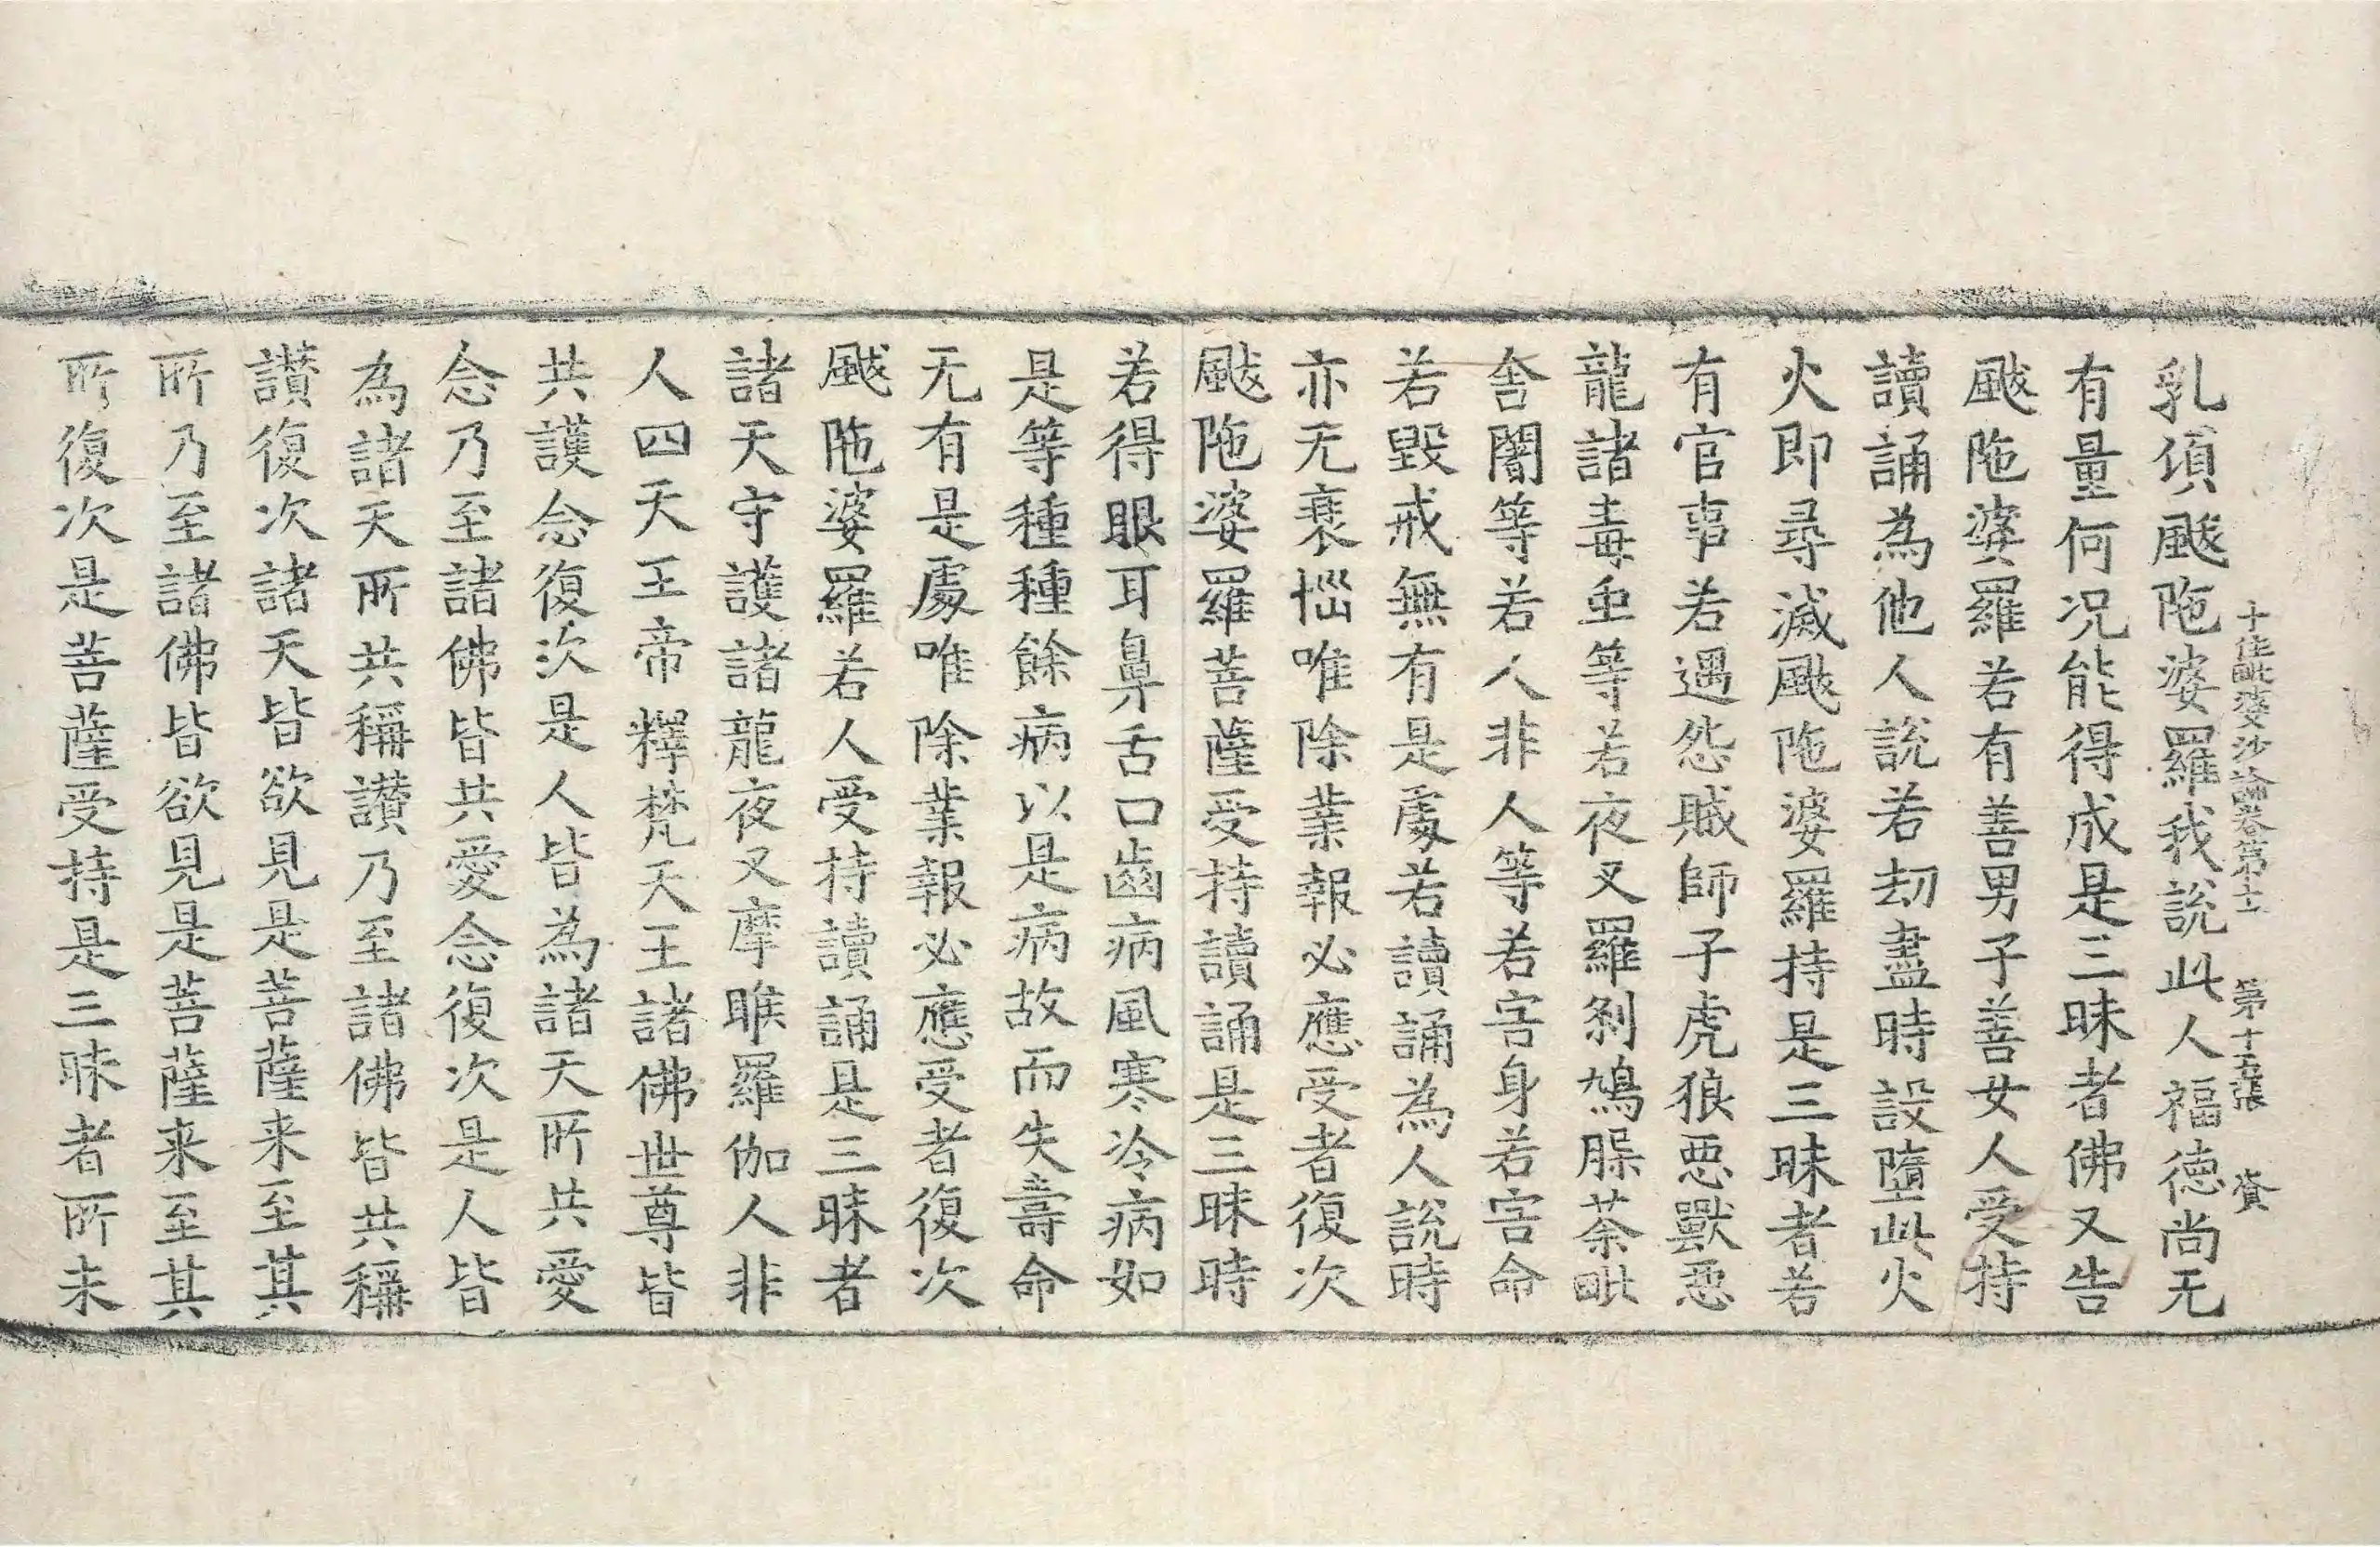 十住毗婆沙論卷第十二 第十五張 資
乳頃颰陁婆羅我說此人福德尚无
有量何況能得成是三昧者佛又告
颰陁婆羅若有善男子善女人受持
讀誦為他人說若劫盡時設墮此火
火即尋滅颰陁婆羅持是三昧者若
有官事若遇怨賊師子虎狼惡獸惡
龍諸毒虫等若夜叉羅剎鳩脲荼毗
舍闍等若人非人等若害身若害命
若毀戒無有是處若讀誦為人說時
亦无衰惱唯除業報必應受者復次
颰陁婆羅菩薩受持讀誦是三昧時
若得眼耳鼻舌口齒病風寒冷病如
是等種種餘病以是病故而失壽命
无有是處唯除業報必應受者復次
颰陁婆羅若人受持讀誦是三昧者
諸天守護諸龍夜叉摩睺羅伽人非
人四天王帝釋梵天王諸佛世尊皆
共護念復次是人皆為諸天所共愛
念乃至諸佛皆共愛念復次是人皆
為諸天所共稱讃乃至諸佛皆共稱
讃復次諸天皆欲見是菩薩来至其
所乃至諸佛皆欲見是菩薩来至其
所復次是菩薩受持是三昧者所未